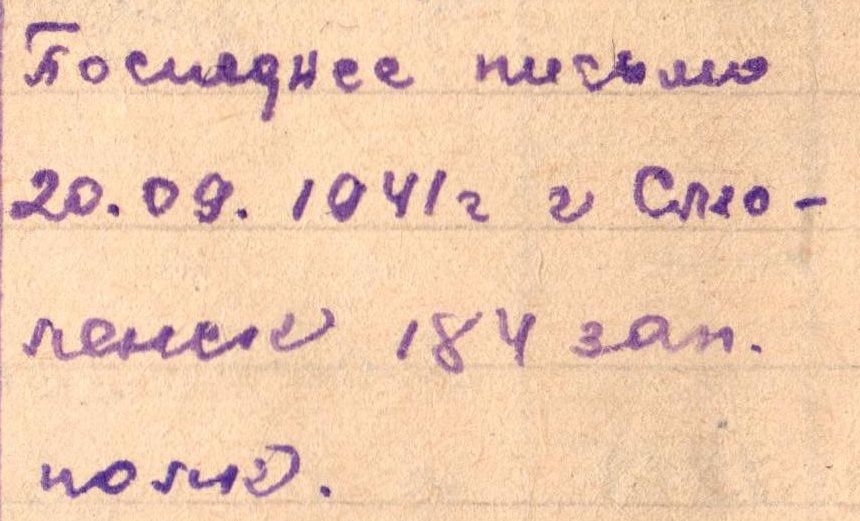 Последнее письмо
20.09.1941г г Смо-
ленск 184 зап.
полк.